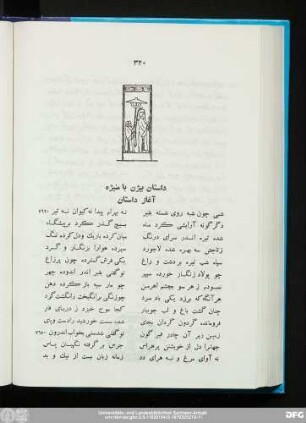 ۳۲۰
داستان بیژن با منیژه
آغاز داستان
شبی چون شبه روی شسته بقیر نه بهرام پیدا نه کیوان نه تیر
دگرگونه آرایشی کرد ماه بسیچ گذر کرد بر پیشگاه
شده تیره اندر سرای درنگ میان کرده باریک و دل کرده تنگ
ز تاجش سه بهره شده لاجورد سپرده هوا را بزنگار و گرد
سپاه شب تیره بر دشت و راغ یکی فرش گسترده چون پر زاغ
چو پولاد زنگار خورده سپهر تو گفتی بقیر اندر اندود چهر
نمودم ز هر سو چشم اهرمن چو مار سیه باز کرده دهن
هر آنگه که بر زد یکی باد سرد چو زنگی برانگیخت ز انگشت گرد
چنان گشت باغ و لب جویبار کجا موج خیزد ز دریای قار
فرومانده گردون گردان بجای شده سست خورشید را دست و پای
زمین زیر آن چادر قیر گون تو گفتی شدستی بخواب اندرون
جهان را دل از خویشتن پر هراس جرس بر گرفته نگهبان پاس
نه آوای مرغ و نه هرای دد زمانه زبان بست از نیک و بد